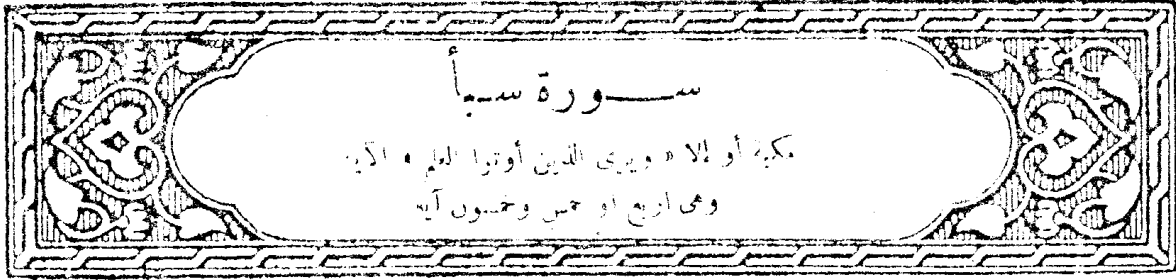 سورة سبأ
مكية أو إلا « ويرى الذين أوتوا العلم » الآية
وهى أربع أو خمس وخمسون آية